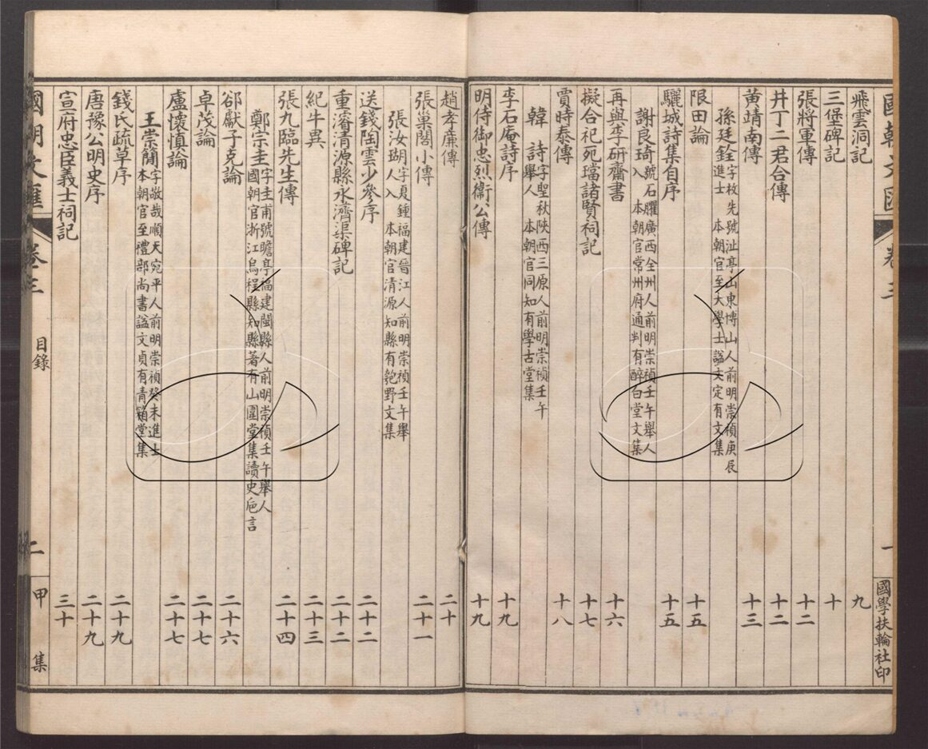 國朝文匯 卷三 一 國學扶輪社印
飛雲洞記 九
三堡碑記 十
張將軍傳 十二
井丁二君合傳 十二
黃靖南傳 十三
孫廷銓 字枚先號沚亭山東博山人前明崇禎庚辰
進士 本朝官至大學士謚文定有文集
限田論 十五
驪城詩集自序 十五
謝良琦 號石臞廣西全州人前明崇禎壬午舉人
入 本朝官常州府通判有醉白堂文集
再與李研齋書 十六
擬合祀死璫諸賢祠記 十七
賈時泰傳 十八
韓 詩 字聖秋陝西三原人前明崇禎壬午
舉人 本朝官同知有學古堂集
李石庵詩序 十九
明侍御忠烈衞公傳 十九
趙孝廉傳 二十
張巢閣小傳 二十一
張汝瑚 字夏鍾福建晉江人前明崇禎壬午舉
人入 本朝官清源知縣有匏野文集
送錢陶雲少參序 二十二
重濬清源縣水濟渠碑記 二十二
紀牛異 二十三
張九臨先生傳 二十四
鄭宗圭 字圭甫號瞻亭福建閩縣人前明崇禎壬午舉人
國朝官浙江烏程縣知縣著有山圍堂集讀史巵言
郤獻子克論 二十六
卓茂論 二十七
盧懷慎論 二十七
王崇簡 字敬哉順天宛平人前明崇禎癸未進士
本朝官至禮部尚書謚文貞有青箱堂集
錢氏疏草序 二十九
唐豫公明史序 二十九
宣府忠臣義士祠記 三十
國朝文匯 卷三 目錄 二 甲集